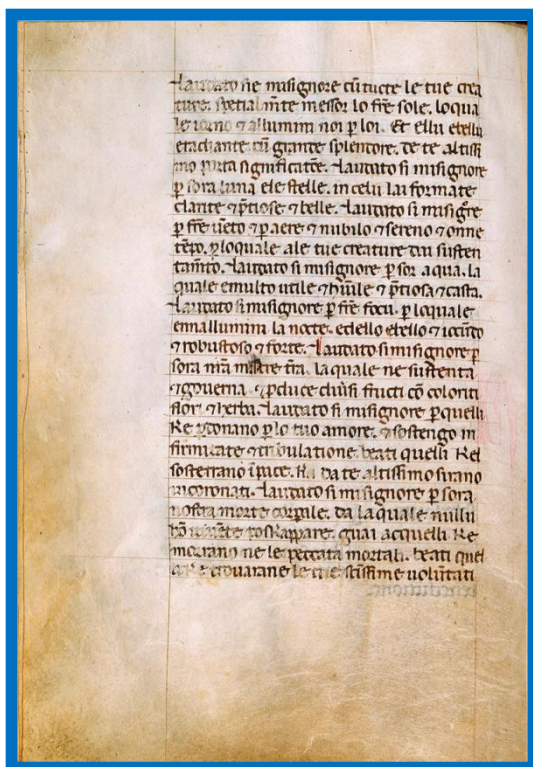 Laudato sie misignore cū tucte le tue crea
ture. spetialm̄te messor lo fr̄e sole. loqua
le iorno ⁊ allumini noi p loi. Et ellu ebellu
eradiante cū grande splendore. de te altissi
mo porta significatōe. Laudato si misignore
p sora luna ele stelle. in celu lai formate
clarite ⁊ p̄tiose ⁊ belle. Laudato si misigr̄e
p fr̄e uēto ⁊ p aere ⁊ nubilo ⁊ sereno ⁊ onne
tēpo. p loquale ale tue creature dai susten
tam̄to. Laudato si misignore p sor aqua. la
quale emulto utile ⁊ hūile ⁊ p̄tiosa ⁊ casta.
Laudato si misignore p fr̄e focu. p loquale
ennallumini la nocte. edello ebello ⁊ iocūdo
⁊ robustoso ⁊ forte. Laudato si misignore p
sora nr̄a matre tr̄a. la quale ne sustenta
⁊ governa. ⁊ pduce diūsi fructi cō coloriti
flori ⁊ herba. Laudato si misignore p quelli
ke pdonano p lo tuo amore. ⁊ sostengo in
firmitate ⁊ tribulatione. beati quelli kel
sosterrano ī pace. ka da te altissimo sirano
incoronati. Laudato si misignore p sora
nostra morte corpale. da la quale nullu
hō uiuēte poskappare. guai acquelli ke
morrano ne le peccata mortali. beati quel
li ke trouarane le tue sc̄issime uolūtati